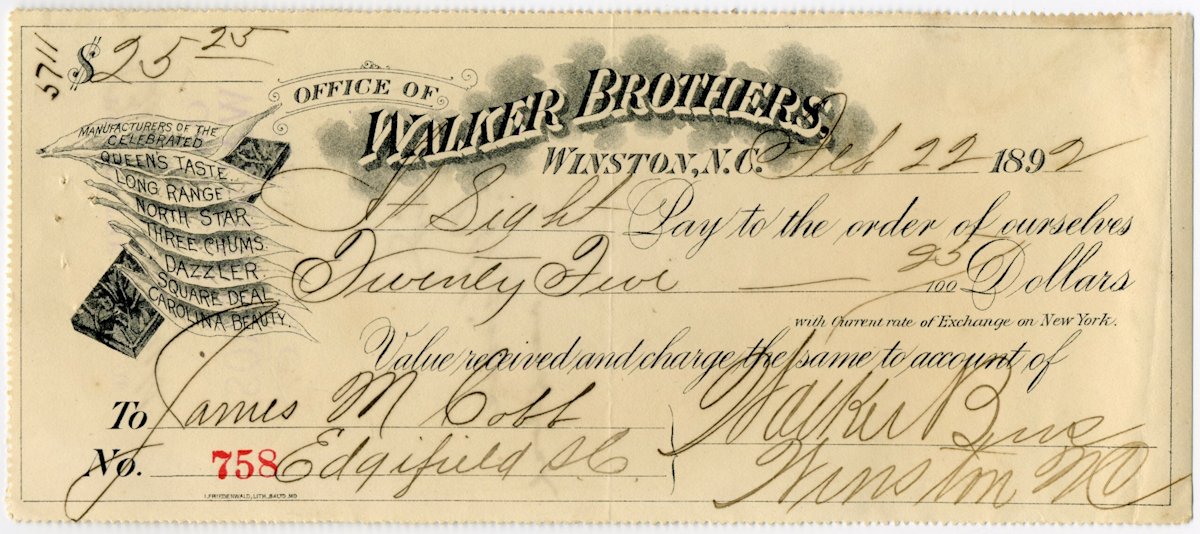 5711
$25 25
OFFICE OF
WALKER BROTHERS.
WINSTON, N.C. Feb 22 1892
MANUFACTURERS OF THE
CELEBRATED
QUEENS TASTE.
LONG RANGE.
NORTH STAR
THREE CHUMS.
DAZZLER
SQUARE DEAL
CAROLINA BEAUTY.
At Sight Pay to the order of ourselves
Twenty Five — 25/100 Dollars
with Current rate of Exchange on New York.
Value received and charge the same to account of
To James M Cobb
Walker Bros
No. 758 Edgifield S.C.
Winston NC
I. FRIEDENWALD, LITH. BALTO. MD